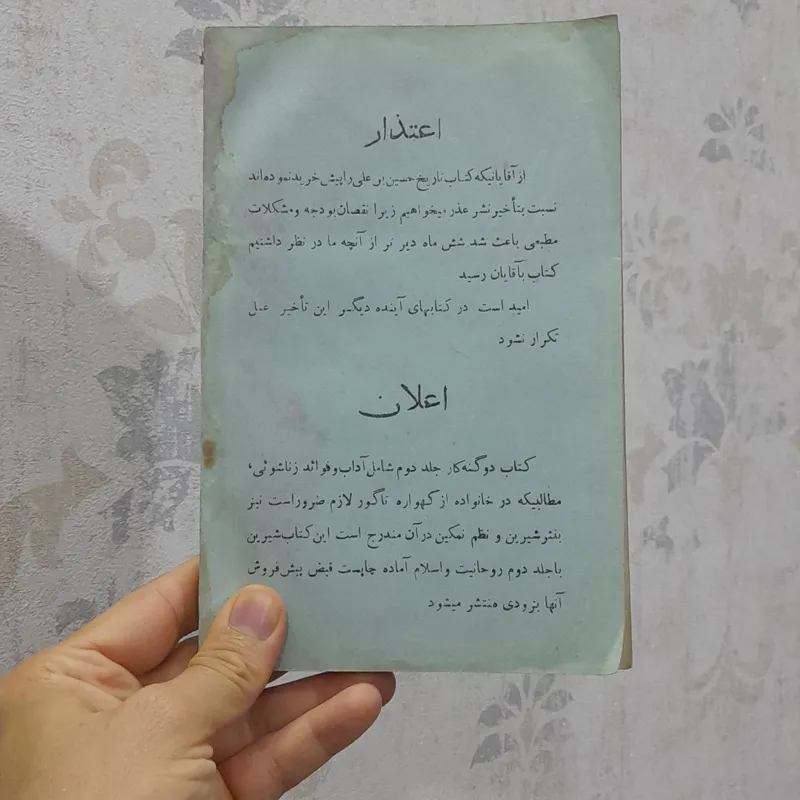 اعتذار
از آقایانیکه کتاب تاریخ حسین بن علی را پیش خرید نموده اند
نسبت بتأخیر نشر عذر میخواهیم زیرا نقصان بودجه و مشکلات
مطبعی باعث شد شش ماه دیر تر از آنچه ما در نظر داشتیم
کتاب بآقایان رسید
امید است در کتابهای آینده دیگر این تأخیر عمل
تکرار نشود
اعلان
کتاب دو گنه کار جلد دوم شامل آداب و فوائد زناشوئی،
مطالبیکه در خانواده از گهواره تا گور لازم ضرور است نیز
بنثر شیرین و نظم نمکین در آن مندرج است این کتاب شیرین
با جلد دوم روحانیت و اسلام آماده چاپست قبض پیش فروش
آنها بزودی منتشر میشود